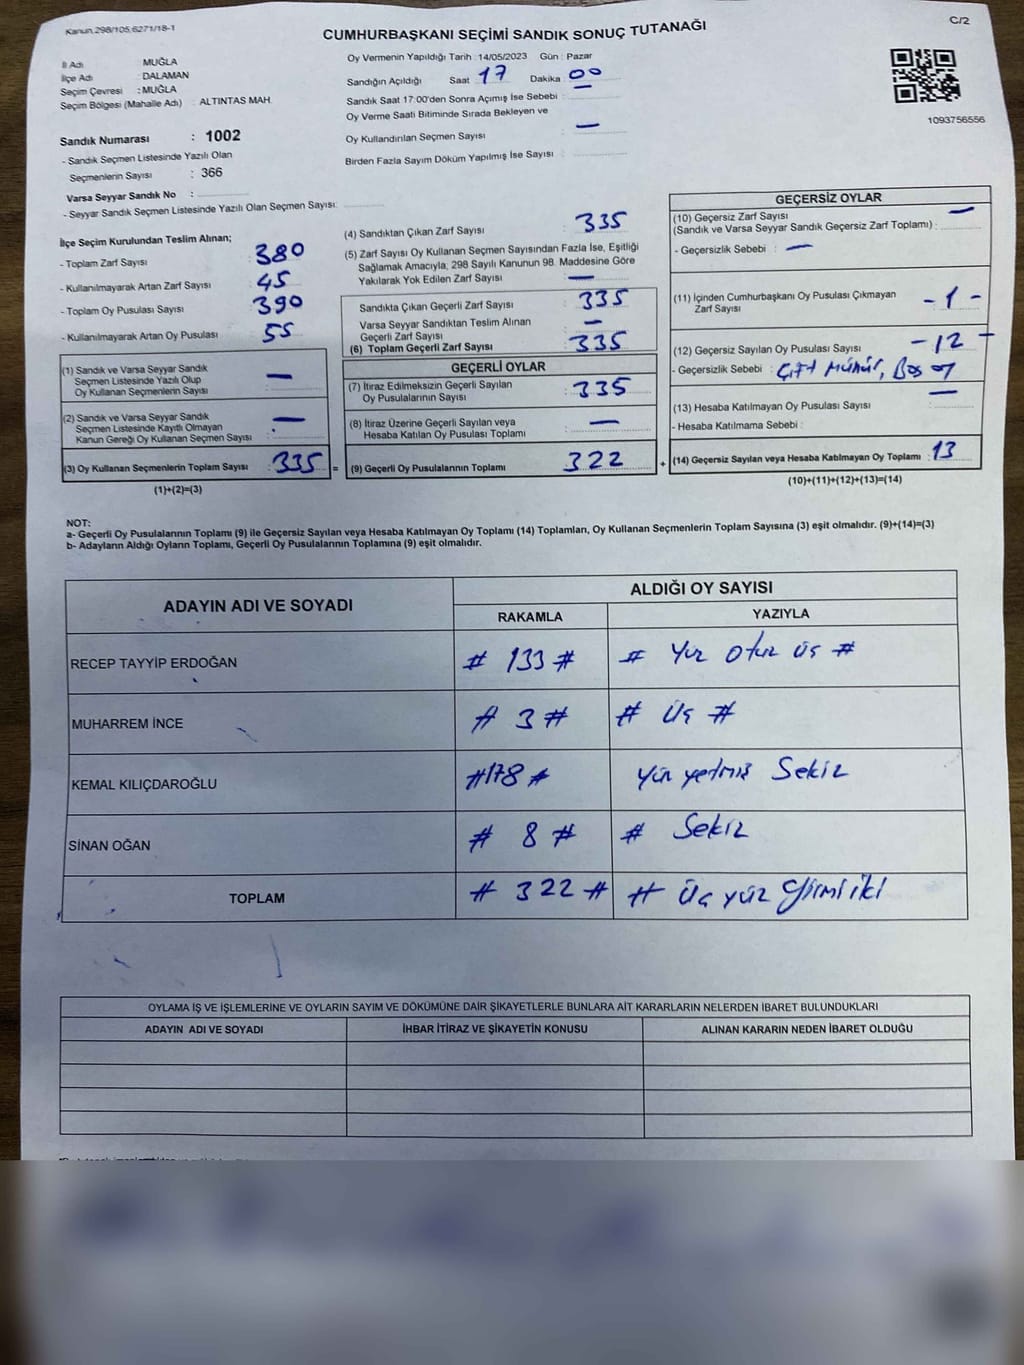 Kanun.298/105,6271/18-1
C/2
CUMHURBAŞKANI SEÇİMİ SANDIK SONUÇ TUTANAĞI
İl Adı : MUĞLA
İlçe Adı : DALAMAN
Seçim Çevresi : MUĞLA
Seçim Bölgesi (Mahalle Adı) : ALTINTAS MAH.
Sandık Numarası : 1002
- Sandık Seçmen Listesinde Yazılı Olan
Seçmenlerin Sayısı : 366
Varsa Seyyar Sandık No :
- Seyyar Sandık Seçmen Listesinde Yazılı Olan Seçmen Sayısı:
Oy Vermenin Yapıldığı Tarih : 14/05/2023 Gün : Pazar
Sandığın Açıldığı Saat 17 Dakika 00
Sandık Saat 17:00'den Sonra Açımış İse Sebebi :
Oy Verme Saati Bitiminde Sırada Bekleyen ve
Oy Kullandırılan Seçmen Sayısı : —
Birden Fazla Sayım Döküm Yapılmış İse Sayısı :
1093756556
İlçe Seçim Kurulundan Teslim Alınan;
- Toplam Zarf Sayısı : 380
- Kullanılmayarak Artan Zarf Sayısı : 45
- Toplam Oy Pusulası Sayısı : 390
- Kullanılmayarak Artan Oy Pusulası : 55
(1) Sandık ve Varsa Seyyar Sandık
Seçmen Listesinde Yazılı Olup
Oy Kullanan Seçmenlerin Sayısı : —
(2) Sandık ve Varsa Seyyar Sandık
Seçmen Listesinde Kayıtlı Olmayan
Kanun Gereği Oy Kullanan Seçmen Sayısı : —
(3) Oy Kullanan Seçmenlerin Toplam Sayısı : 335 =
(1)+(2)=(3)
(4) Sandıktan Çıkan Zarf Sayısı : 335
(5) Zarf Sayısı Oy Kullanan Seçmen Sayısından Fazla İse, Eşitliği
Sağlamak Amacıyla, 298 Sayılı Kanunun 98. Maddesine Göre
Yakılarak Yok Edilen Zarf Sayısı : —
Sandıkta Çıkan Geçerli Zarf Sayısı : 335
Varsa Seyyar Sandıktan Teslim Alınan
Geçerli Zarf Sayısı : —
(6) Toplam Geçerli Zarf Sayısı : 335
GEÇERLİ OYLAR
(7) İtiraz Edilmeksizin Geçerli Sayılan
Oy Pusulalarının Sayısı : 335
(8) İtiraz Üzerine Geçerli Sayılan veya
Hesaba Katılan Oy Pusulası Toplamı : —
(9) Geçerli Oy Pusulalarının Toplamı : 322 +
GEÇERSİZ OYLAR
(10) Geçersiz Zarf Sayısı —
(Sandık ve Varsa Seyyar Sandık Geçersiz Zarf Toplamı) :
- Geçersizlik Sebebi : —
(11) İçinden Cumhurbaşkanı Oy Pusulası Çıkmayan
Zarf Sayısı : - 1 -
(12) Geçersiz Sayılan Oy Pusulası Sayısı : - 12 -
- Geçersizlik Sebebi : Çift mühür, Boş oy
(13) Hesaba Katılmayan Oy Pusulası Sayısı : —
- Hesaba Katılmama Sebebi :
(14) Geçersiz Sayılan veya Hesaba Katılmayan Oy Toplamı : 13
(10)+(11)+(12)+(13)=(14)
NOT:
a- Geçerli Oy Pusulalarının Toplamı (9) ile Geçersiz Sayılan veya Hesaba Katılmayan Oy Toplamı (14) Toplamları, Oy Kullanan Seçmenlerin Toplam Sayısına (3) eşit olmalıdır. (9)+(14)=(3)
b- Adayların Aldığı Oyların Toplamı, Geçerli Oy Pusulalarının Toplamına (9) eşit olmalıdır.
ADAYIN ADI VE SOYADI ALDIĞI OY SAYISI
RAKAMLA YAZIYLA
RECEP TAYYİP ERDOĞAN # 133 # # Yüz Otuz üç #
MUHARREM İNCE # 3 # # Üç #
KEMAL KILIÇDAROĞLU #178 # Yüz yetmiş Sekiz
SİNAN OĞAN # 8 # # Sekiz
TOPLAM # 322 # # Üç yüz yirmi iki
OYLAMA İŞ VE İŞLEMLERİNE VE OYLARIN SAYIM VE DÖKÜMÜNE DAİR ŞİKAYETLERLE BUNLARA AİT KARARLARIN NELERDEN İBARET BULUNDUKLARI
ADAYIN ADI VE SOYADI İHBAR İTİRAZ VE ŞİKAYETİN KONUSU ALINAN KARARIN NEDEN İBARET OLDUĞU